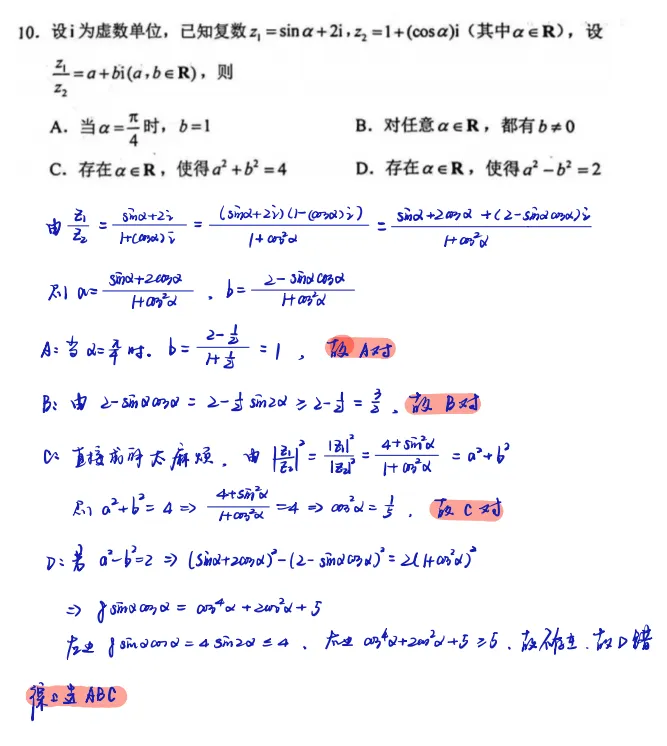 10. 设i为虚数单位，已知复数z₁=sinα+2i,z₂=1+(cosα)i（其中α∈R），设
z₁/z₂=a+bi(a,b∈R)，则
A. 当α=π/4时，b=1
B. 对任意α∈R，都有b≠0
C. 存在α∈R，使得a²+b²=4
D. 存在α∈R，使得a²-b²=2
由 z₁/z₂ = (sinα+2i)/(1+(cosα)i) = (sinα+2i)(1-(cosα)i)/(1+cos²α) = (sinα+2cosα+(2-sinαcosα)i)/(1+cos²α)
则 a=(sinα+2cosα)/(1+cos²α), b=(2-sinαcosα)/(1+cos²α)
A: 当α=π/4时. b=(2-1/2)/(1+1/2)=1, 故A对
B: 由 2-sinαcosα=2-1/2sin2α≥2-1/2=3/2. 故B对
C: 直接求解太麻烦. 由|z₁/z₂|²=|z₁|²/|z₂|²=(4+sin²α)/(1+cos²α)=a²+b²
则 a²+b²=4 => (4+sin²α)/(1+cos²α)=4 => cos²α=1/5. 故C对
D: 若 a²-b²=2 => (sinα+2cosα)²-(2-sinαcosα)²=2(1+cos²α)²
=> 8sinαcosα=cos⁴α+2cos²α+5
左边 8sinαcosα=4sin2α≤4. 右边 cos⁴α+2cos²α+5≥5. 故不存在. 故D错
综上选ABC